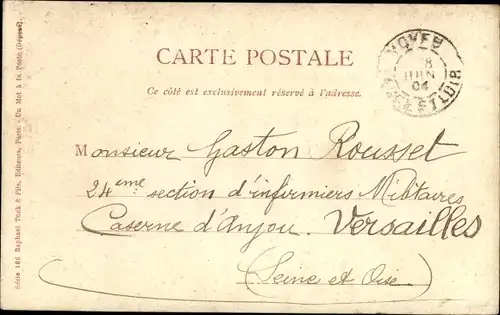 CARTE POSTALE
Ce côté est exclusivement réservé à l'adresse.
8
JUIN
04
Monsieur Gaston Rousset
24eme section d'infirmiers Militaires
Caserne d'Anjou. Versailles
(Seine et Oise)
Série 166 Raphael Tuck & Fils, Editeurs, Paris. - Du Mot à la Poste (Déposé).